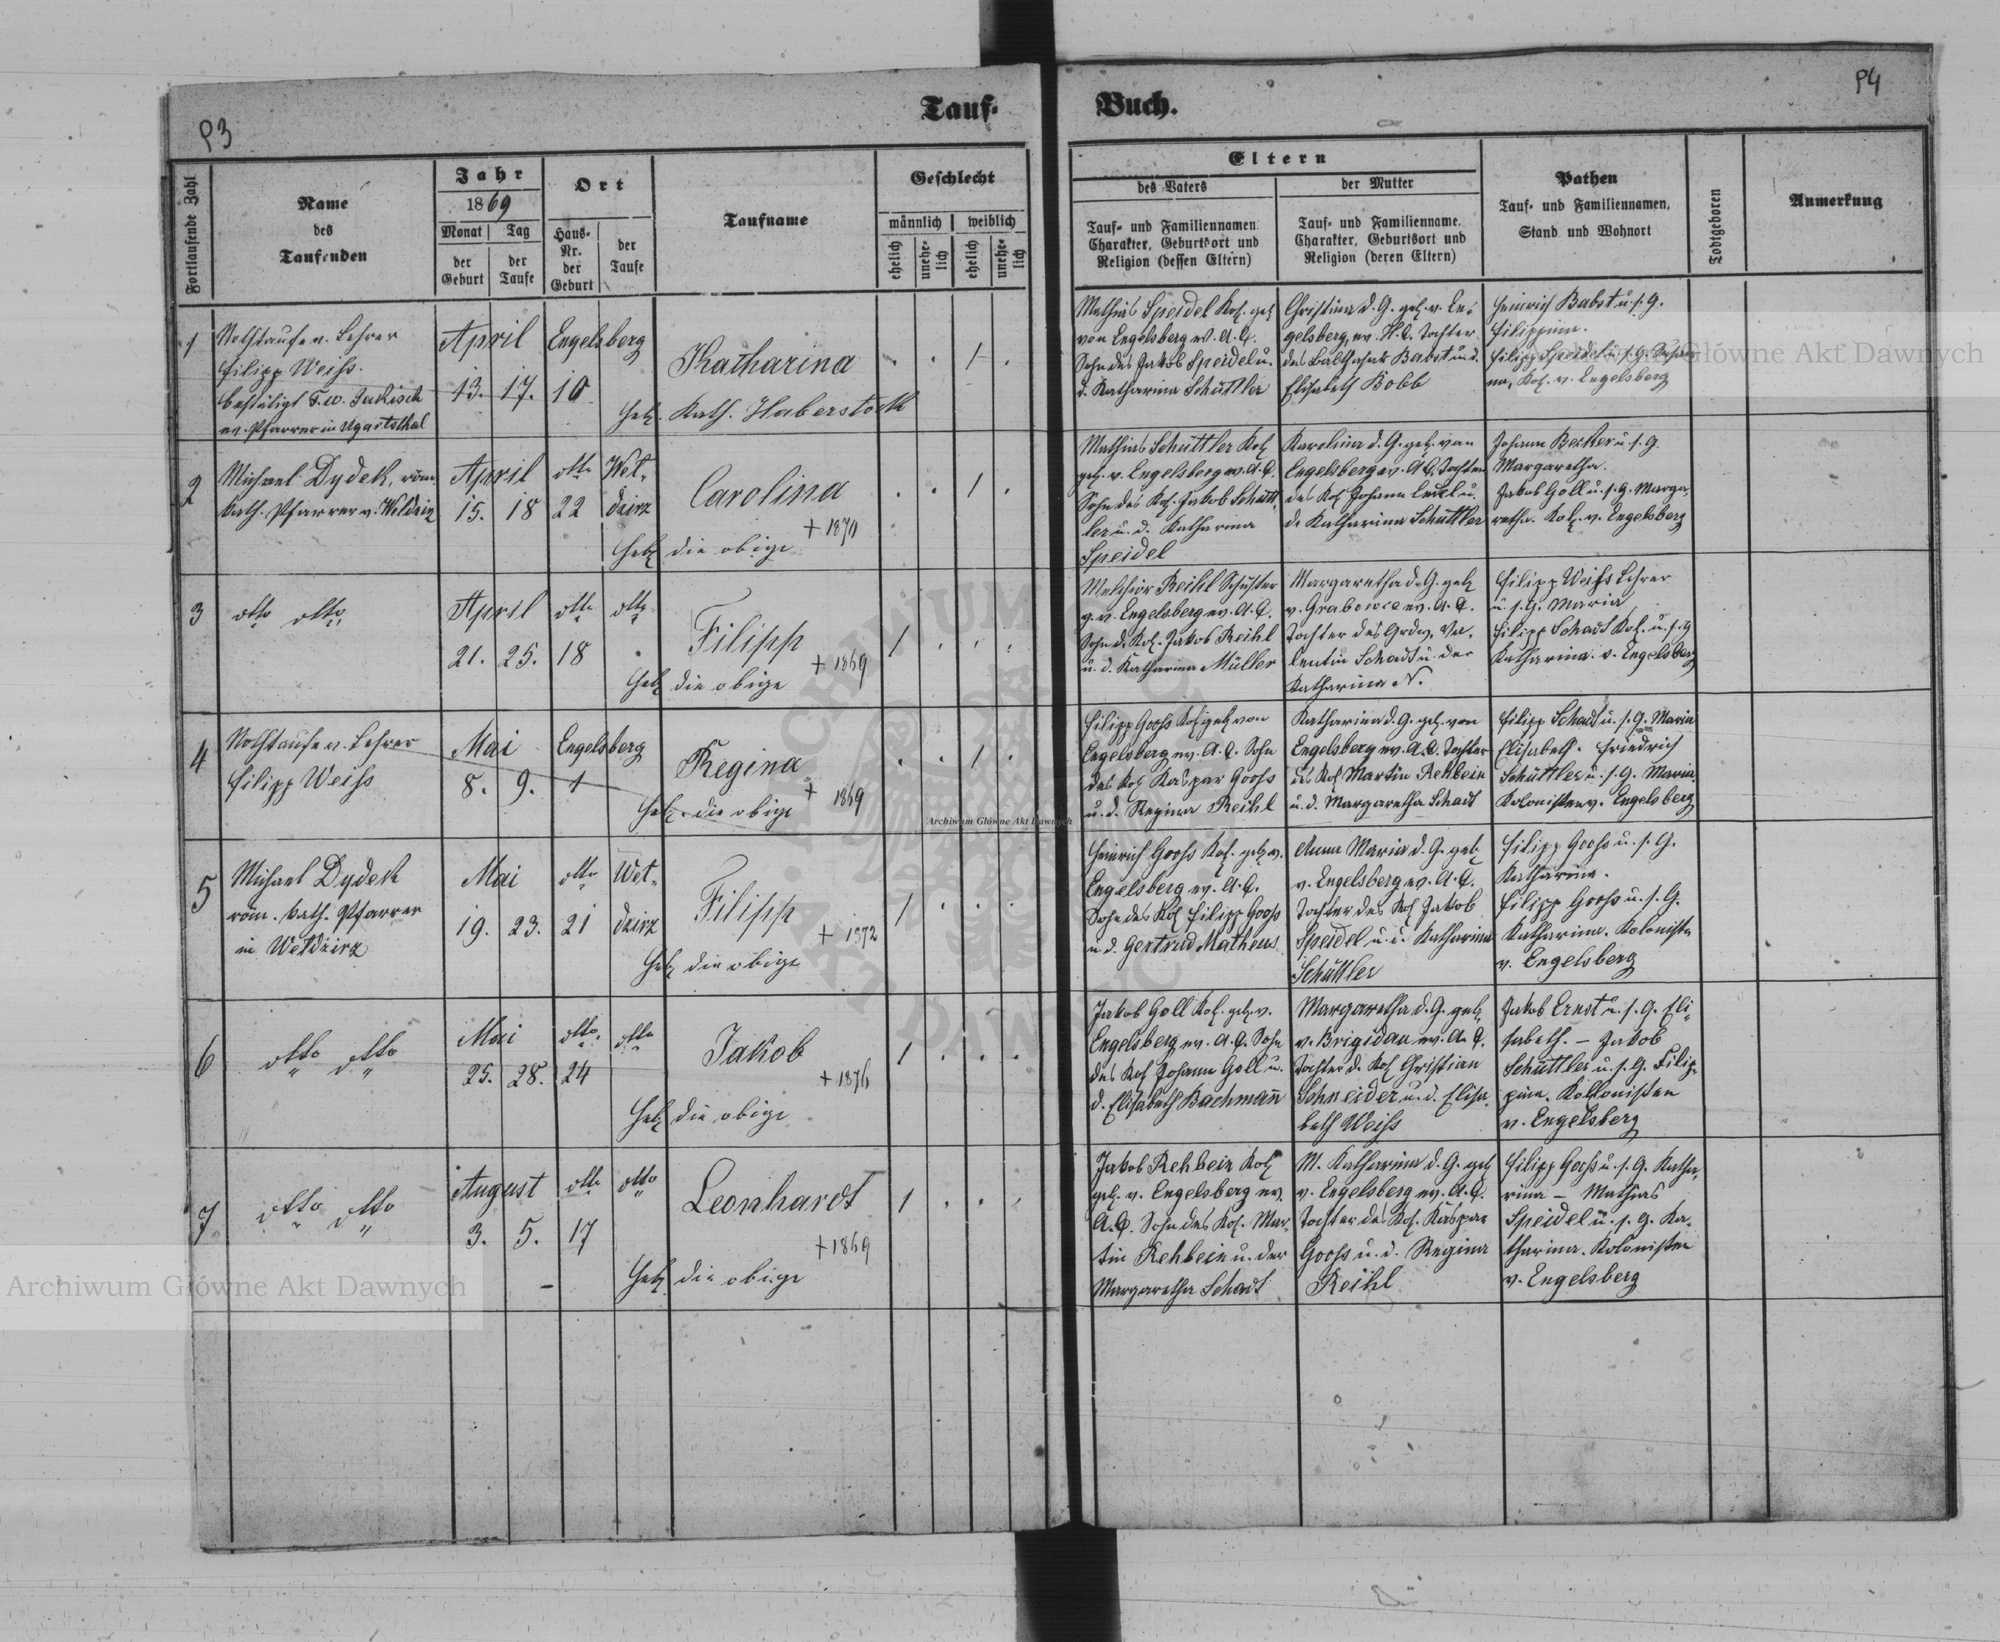 93
Tauf-
Buch.
94
Fortlaufende Zahl
Name
des
Taufenden
Jahr
1869
Monat
Tag
der
Geburt
der
Taufe
Ort
Haus-
Nr.
der
Geburt
der
Taufe
Taufname
Geschlecht
männlich
weiblich
ehelich
unehe-
lich
ehelich
unehe-
lich
Eltern
des Vaters
Tauf- und Familiennamen
Charakter, Geburtsort und
Religion (dessen Eltern)
der Mutter
Tauf- und Familienname,
Charakter, Geburtsort und
Religion (deren Eltern)
Pathen
Tauf- und Familiennamen,
Stand und Wohnort
Todtgeboren
Anmerkung
1
Nothtaufe v. Lehrer
Filipp Weiss.
bestätigt
ev. Pfarrer in Ugartsthal
April
13. 17. 10
Engelsberg
Katharina
Heb. Kath. Haberstock
. . 1 .
Mathias Speidel Kol. geb
von Engelsberg ev. A.C.
Sohn des Jakob Speidel u.
d. Katharina Schüttler
Christina d. G. geb. v. En-
gelsberg, ev. H.C. Tochter
des Balthasar Babst und.
Elisabeth Bobb
Heinrich Babst u. s. G.
Filippina.
Filipp Speidel u. s. G.
Kol. v. Engelsberg
2
Michael Dydek, röm.
kath. Pfarrer v. Weldzirz
April
15. 18 22
otto Wel-
dzirz
Carolina
+ 1870
Heb. die obige
. . 1 .
Mathias Schüttler Kol
geb. v. Engelsberg ev. A.C.
Sohn des Kol. Jakob Schütt-
ler u. d. Katharina
Speidel
Karolina d. G. geb. von
Engelsberg ev. A.C. Tochter
des Kol Johann u.
d. Katharina Schüttler
Johann Becker u. s. G.
Margaretha.
Jakob Goll u. s. G. Marga-
retha. Kol. v. Engelsberg
3
otto otto
April
21. 25. 18
otto otto
Filipp
+ 1869
Heb die obige
1 . . .
Melchior Reihl Schuster
g. v. Engelsberg ev. A.C.
Sohn d. Kol. Jakob Reihl
u. d. Katharina Müller
Margaretha d. G. geb
v. Grabowce ev. A.C.
Tochter des Grdw. Va-
lentin Schadt u. der
Katharina N.
Filipp Weiss Lehrer
u. s. G. Maria
Filipp Schadt Kol. u. s. G
Katharina. v. Engelsberg
4
Nothtaufe v. Lehrer
Filipp Weiss
Mai
8. 9. 1
Engelsberg
Regina
+ 1869
Heb. die obige
. . 1 .
Filipp Gooss Kol geb von
Engelsberg ev. A.C. Sohn
des Kol Kaspar Gooss
u. d. Regina Reihl
Katharina d. G. geb. von
Engelsberg ev. A.C. Tochter
des Kol Martin Rehbein
u. d. Margaretha Schadt
Filipp Schadt u. s. G. Maria
Elisabeth. Friedrich
Schüttler u. s. G. Maria
Kolonisten v. Engelsberg
5
Michael Dydek
röm. kath. Pfarrer
in Weldzirz
Mai
19. 23. 21
otto Wel-
dzirz
Filipp
+ 1872
Heb die obige
1 . . .
Heinrich Gooss Kol. geb v.
Engelsberg ev. A.C.
Sohn des Kol Filipp Gooss
u. d. Gertrud Matheus
Anna Maria d. G. geb
v. Engelsberg ev. A.C.
Tochter des Kol Jakob
Speidel u. d. Katharina
Schüttler
Filipp Gooss u. s. G.
Katharina.
Filipp Gooss u. s. G.
Katharina. Kolonisten
v. Engelsberg
6
otto otto
Mai
25. 28. 24
otto otto
Jakob
+ 1876
Heb die obige
1 . . .
Jakob Goll Kol. geb. v.
Engelsberg ev. A.C. Sohn
des Kol Johann Goll u.
d. Elisabeth Bachmann
Margaretha d. G. geb
v. Brigidau ev. A.C.
Tochter d. Kol Christian
Schneider u. d. Elisa-
beth Weiss
Jakob Ernst u. s. G. Eli-
sabeth. – Jakob
Schüttler u. s. G. Filip-
pine. Kolonisten
v. Engelsberg
7
otto otto
August
3. 5. 17
otto otto
Leonhardt
+ 1869
Heb die obige
1 . . .
Jakob Rehbein Kol
geb. v. Engelsberg ev.
A.C. Sohn des Kol. Mar-
tin Rehbein u. der
Margaretha Schadt
M. Katharina d. G. geb
v. Engelsberg ev. A.C.
Tochter des Kol. Kaspar
Gooss u. d. Regina
Reihl
Filipp Gooss u. s. G. Katha-
rina – Mathias
Speidel u. s. G. Ka-
tharina. Kolonisten
v. Engelsberg
Archiwum Główne Akt Dawnych
Archiwum Główne Akt Dawnych
Archiwum Główne Akt Dawnych